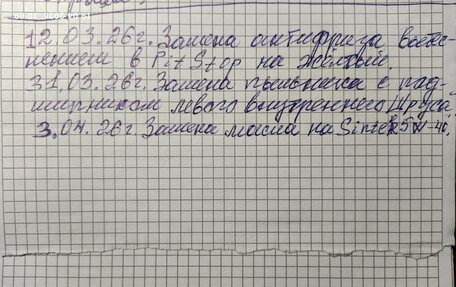 12.03.26г. Замена антифриза вытес-
нением в Pit Stop на жёлтый
31.03.26г. Замена пыльника с под-
шипником левого внутреннего Шруса
3.04.26г. Замена масла на Sintek 5W-40.